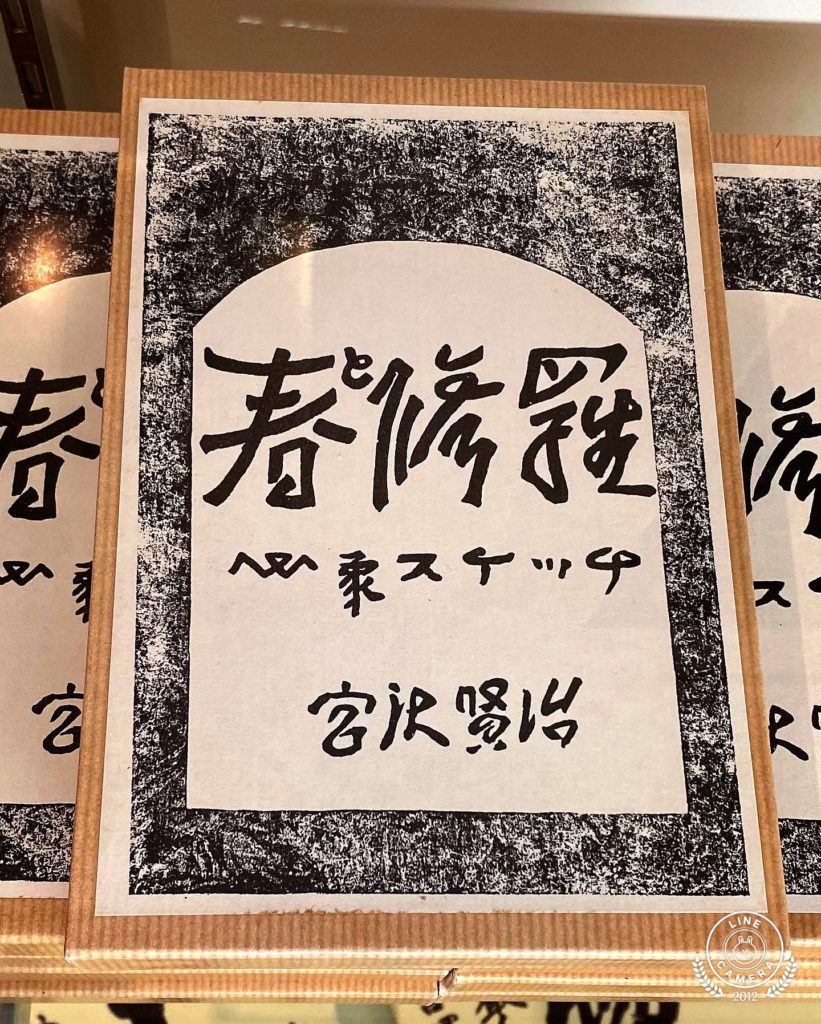 春と修羅
心象スケッチ
宮沢賢治
春と
修
ス
LINE
CAMERA
2012